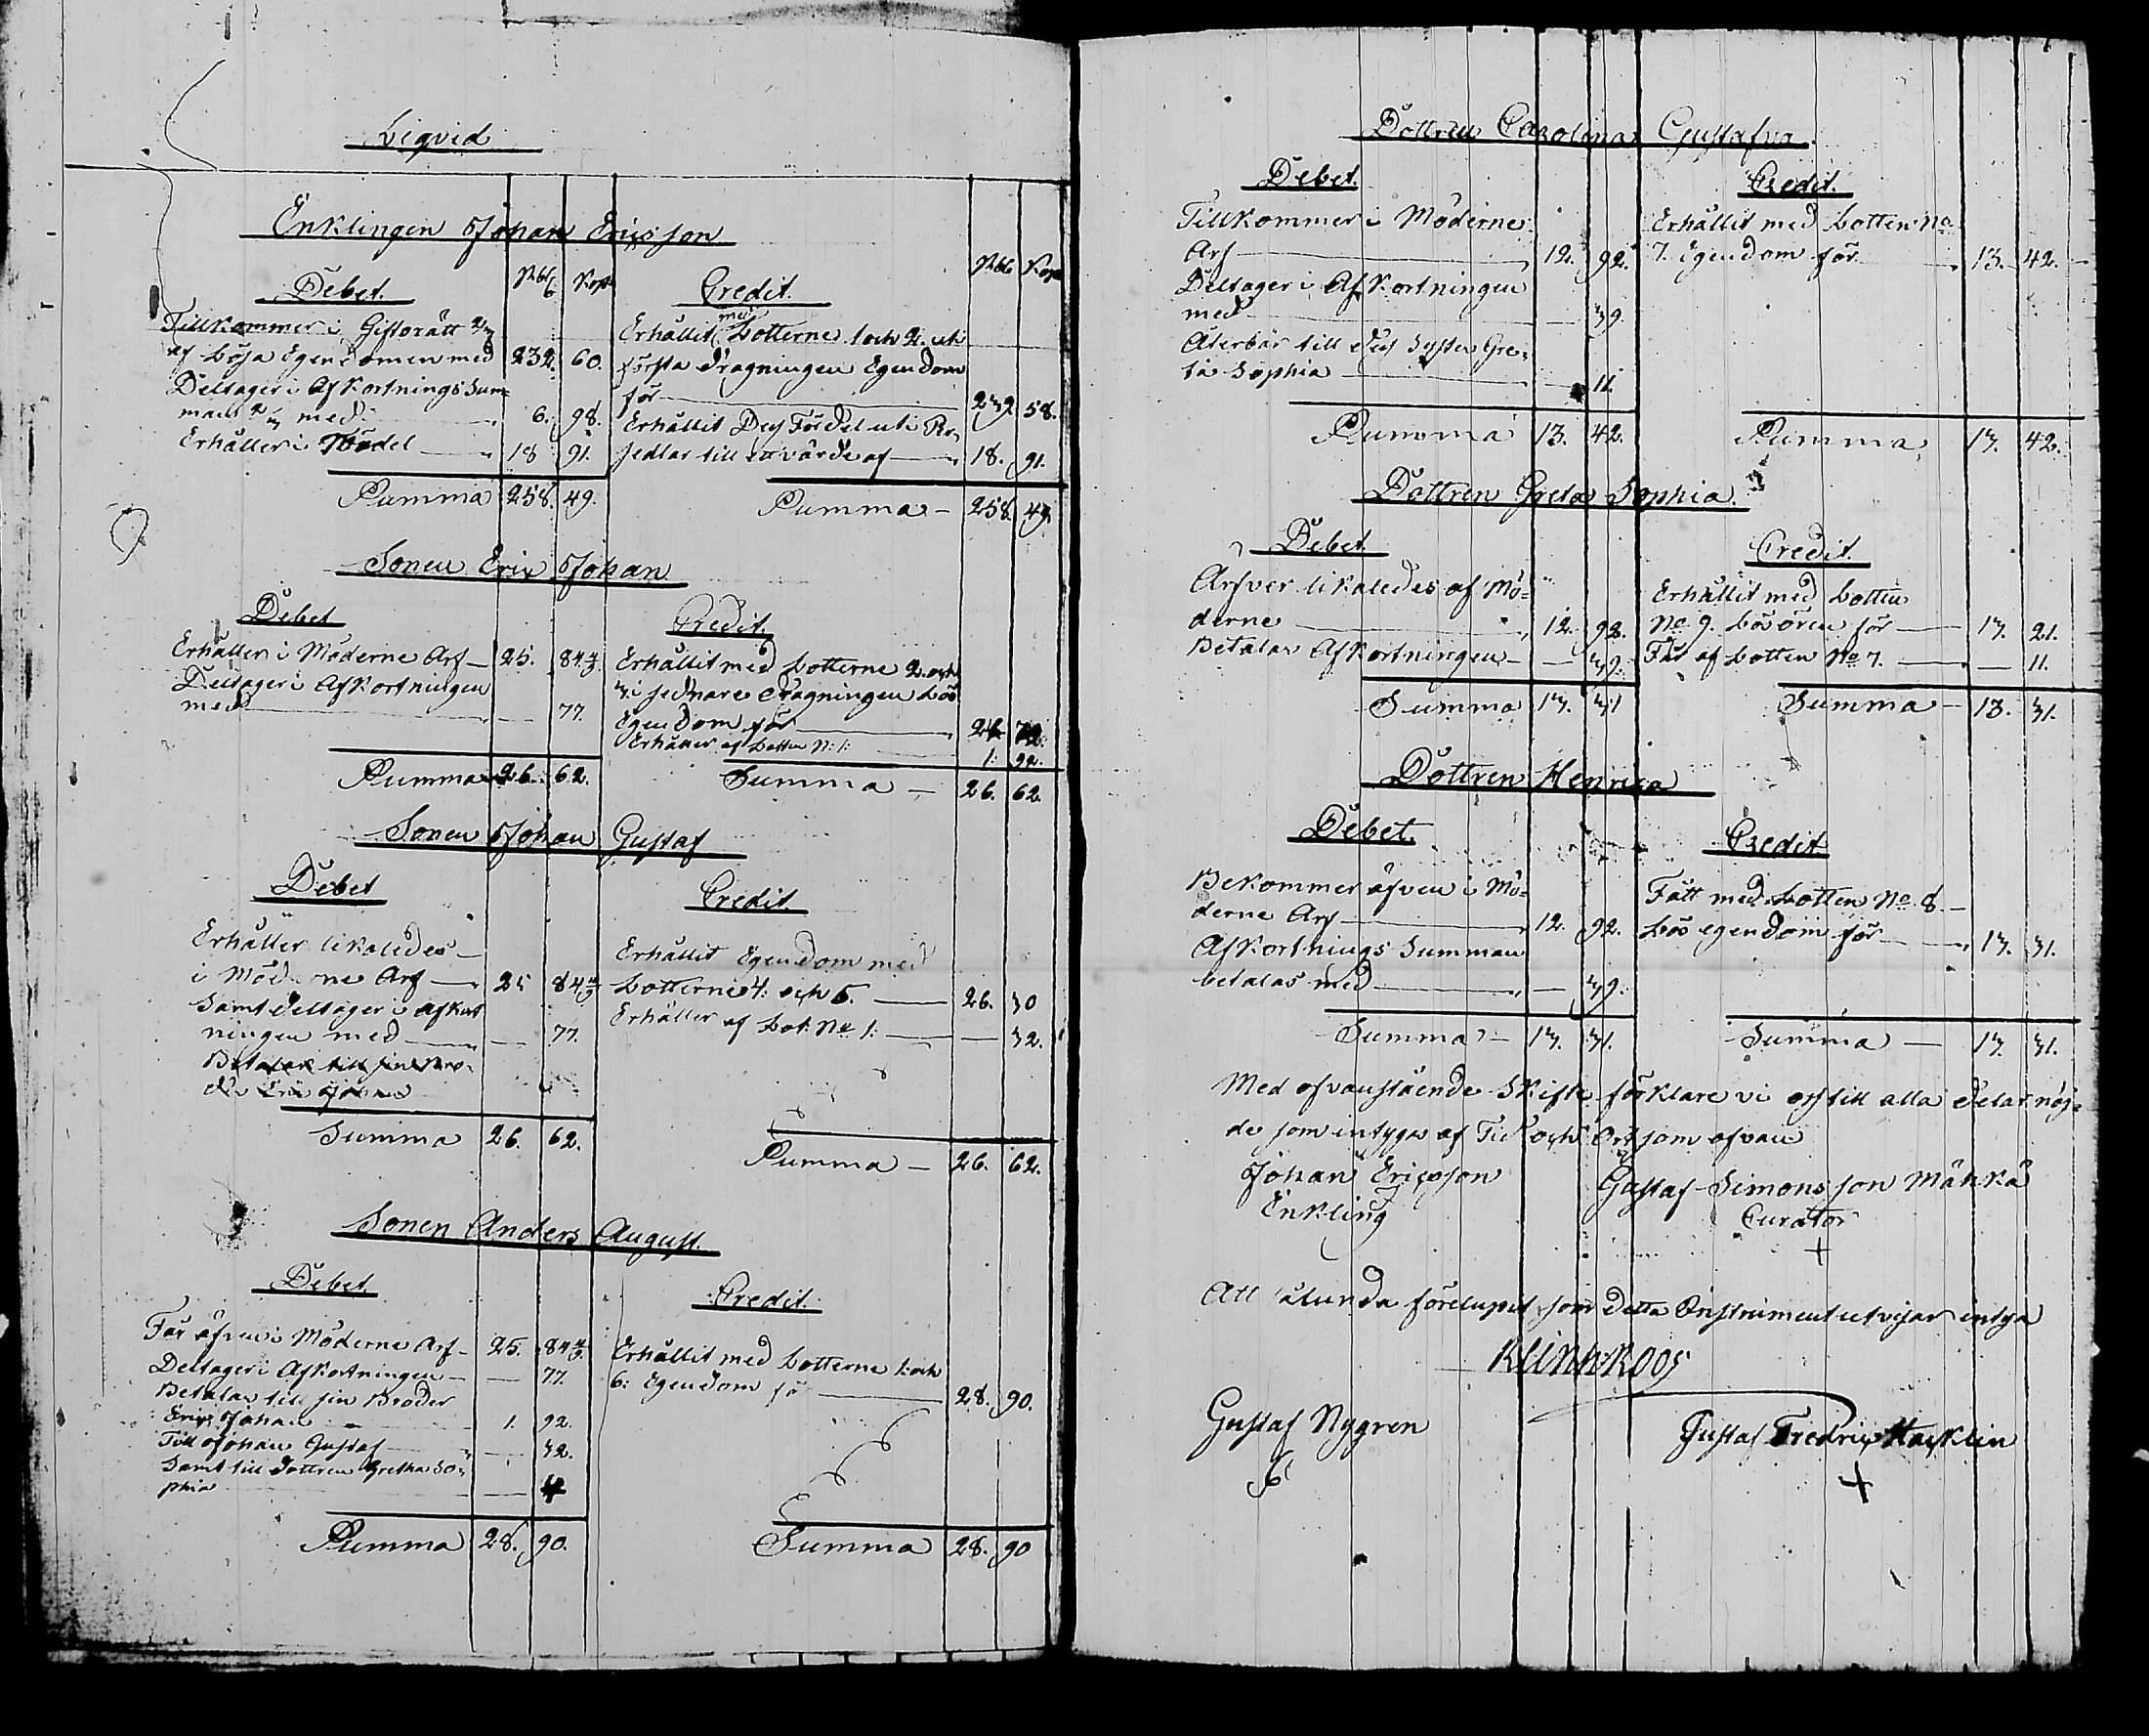 Liqvid
Enklingen Johan Ericsson
Debet. Rbl Kop
Tillkommer i Giftorätt 2/3
af lösa Egendomen med 232. 60.
Deltager i Afkortnings Sum-
man 2/3 med 6. 98.
Erhåller i Fördel 18 91.
Summa 258. 49.
Credit. Rbl Kop
Erhållit med Lotterne 1 och 2. uti
första dragningen Egendom
för 239 58.
Erhållit Des Fördel uti Per-
sedlar till ett värde af 18. 91.
Summa 258. 49.
Sonen Eric Johan
Debet
Erhåller i Möderne Arf 25. 84 4/5.
Deltager i Afkortningen
med 77.
Summa 26. 62.
Credit.
Erhållit med Lotterne 2. och
3. i sednare dragningen Lös
Egendom för
Erhåller af Lotten N: 1: 1. 92.
Summa 26. 62.
Sonen Johan Gustaf
Debet
Erhåller likaledes
i Möderne Arf 25 84 4/5
Samt deltager i afkort
ningen med 77.
Betalar till sin Bro-
der Eric Johan
Summa 26. 62.
Credit.
Erhållit Egendom med
Lotterne 4: och 5. 26. 30
Erhåller af Lot: No 1: 32.
Summa 26. 62.
Sonen Anders August.
Debet.
Får äfven i Möderne Arf 25. 84 4/5.
Deltager i Afkortningen 77.
Betalar till sin Broder
Eric Johan 1. 92.
Till Johan Gustaf 32.
Samt till dottren Gretha So-
phia
Summa 28. 90.
Credit.
Erhållit med Lotterne 1: och
6: Egendom för 28. 90.
Summa 28. 90
Dottren Carolina Gustafva.
Debet.
Tillkommer i Möderne
Arf 12. 92.
Deltager i Afkortningen
med 39.
Återbär till des Syster Gre-
ta Sophia 11.
Summa 13. 42.
Credit.
Erhållit med Lotten No
7. Egendom för 13. 42.
Summa 13. 42.
Dottren Greta Sophia.
Debet
Arfver likaledes af Mö-
derne 12. 92.
Betalar Afkortningen 39.
Summa 13. 31
Credit.
Erhållit med Lotten
No 9. Lösören för 13. 21.
Får af Lotten No 7. 11.
Summa 13. 31.
Dottren Henrica
Debet.
Bekommer äfven i Mö-
derne Arf 12. 92.
Afkortnings Summan
betalas med 39.
Summa 13. 31.
Credit
Fått med Lotten No 8
Lös egendom för 13. 31.
Summa 13. 31.
Med ofvanstående Skifte förklare vi oss till alla delar nöj-
de som intygas af Tid och Ort som ofvan
Johan Ericsson
Enkling
Gustaf Simonsson Mänkä
Curator
+
Att sålunda förelupit som detta Instrument utvisar intyga
Gustaf Nygren
Gustaf Fredric
+